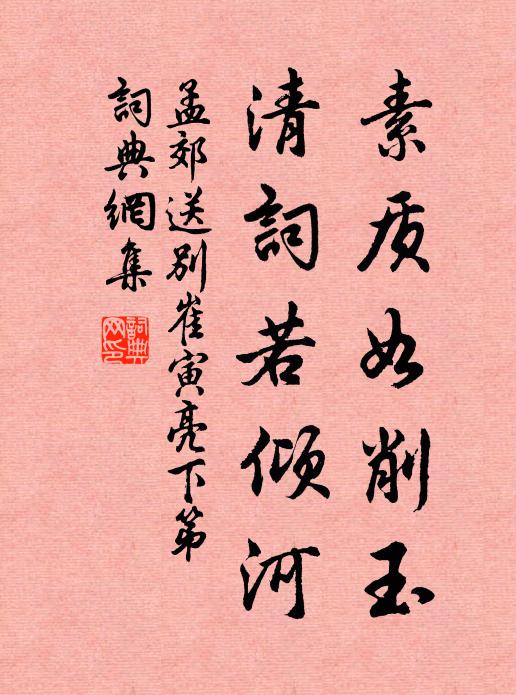 素质如削玉
清詞若倾河
孟郊送别崔寅亮下第
詞典網集
詞典
网印